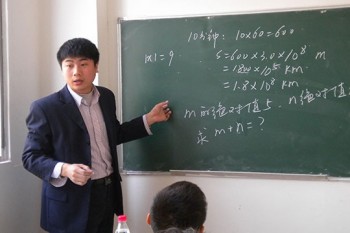 10分钟: 10×60=600
|x|=9
S=600×3.0×10⁸ m
=1800×10⁵ km
=1.8×10⁸ km
m的绝对值5, n绝对值
求 m+n=?